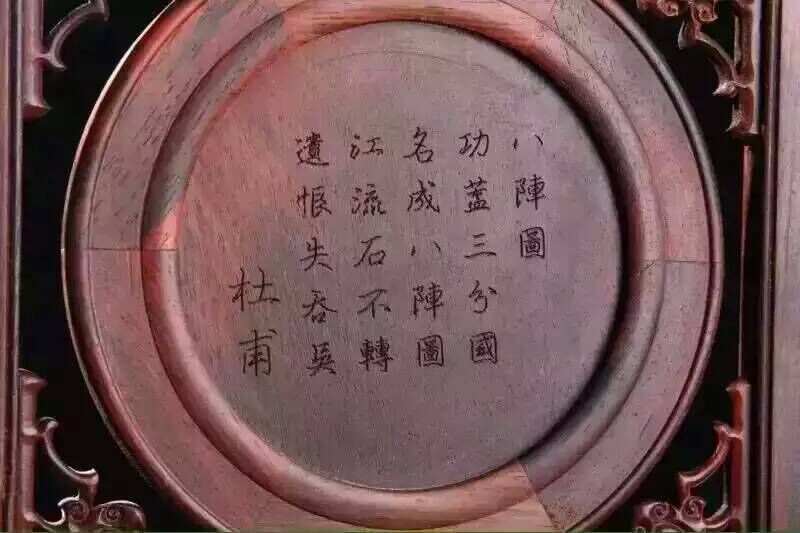 八陣圖
功蓋三分國
名成八陣圖
江流石不轉
遺恨失吞吳
杜甫